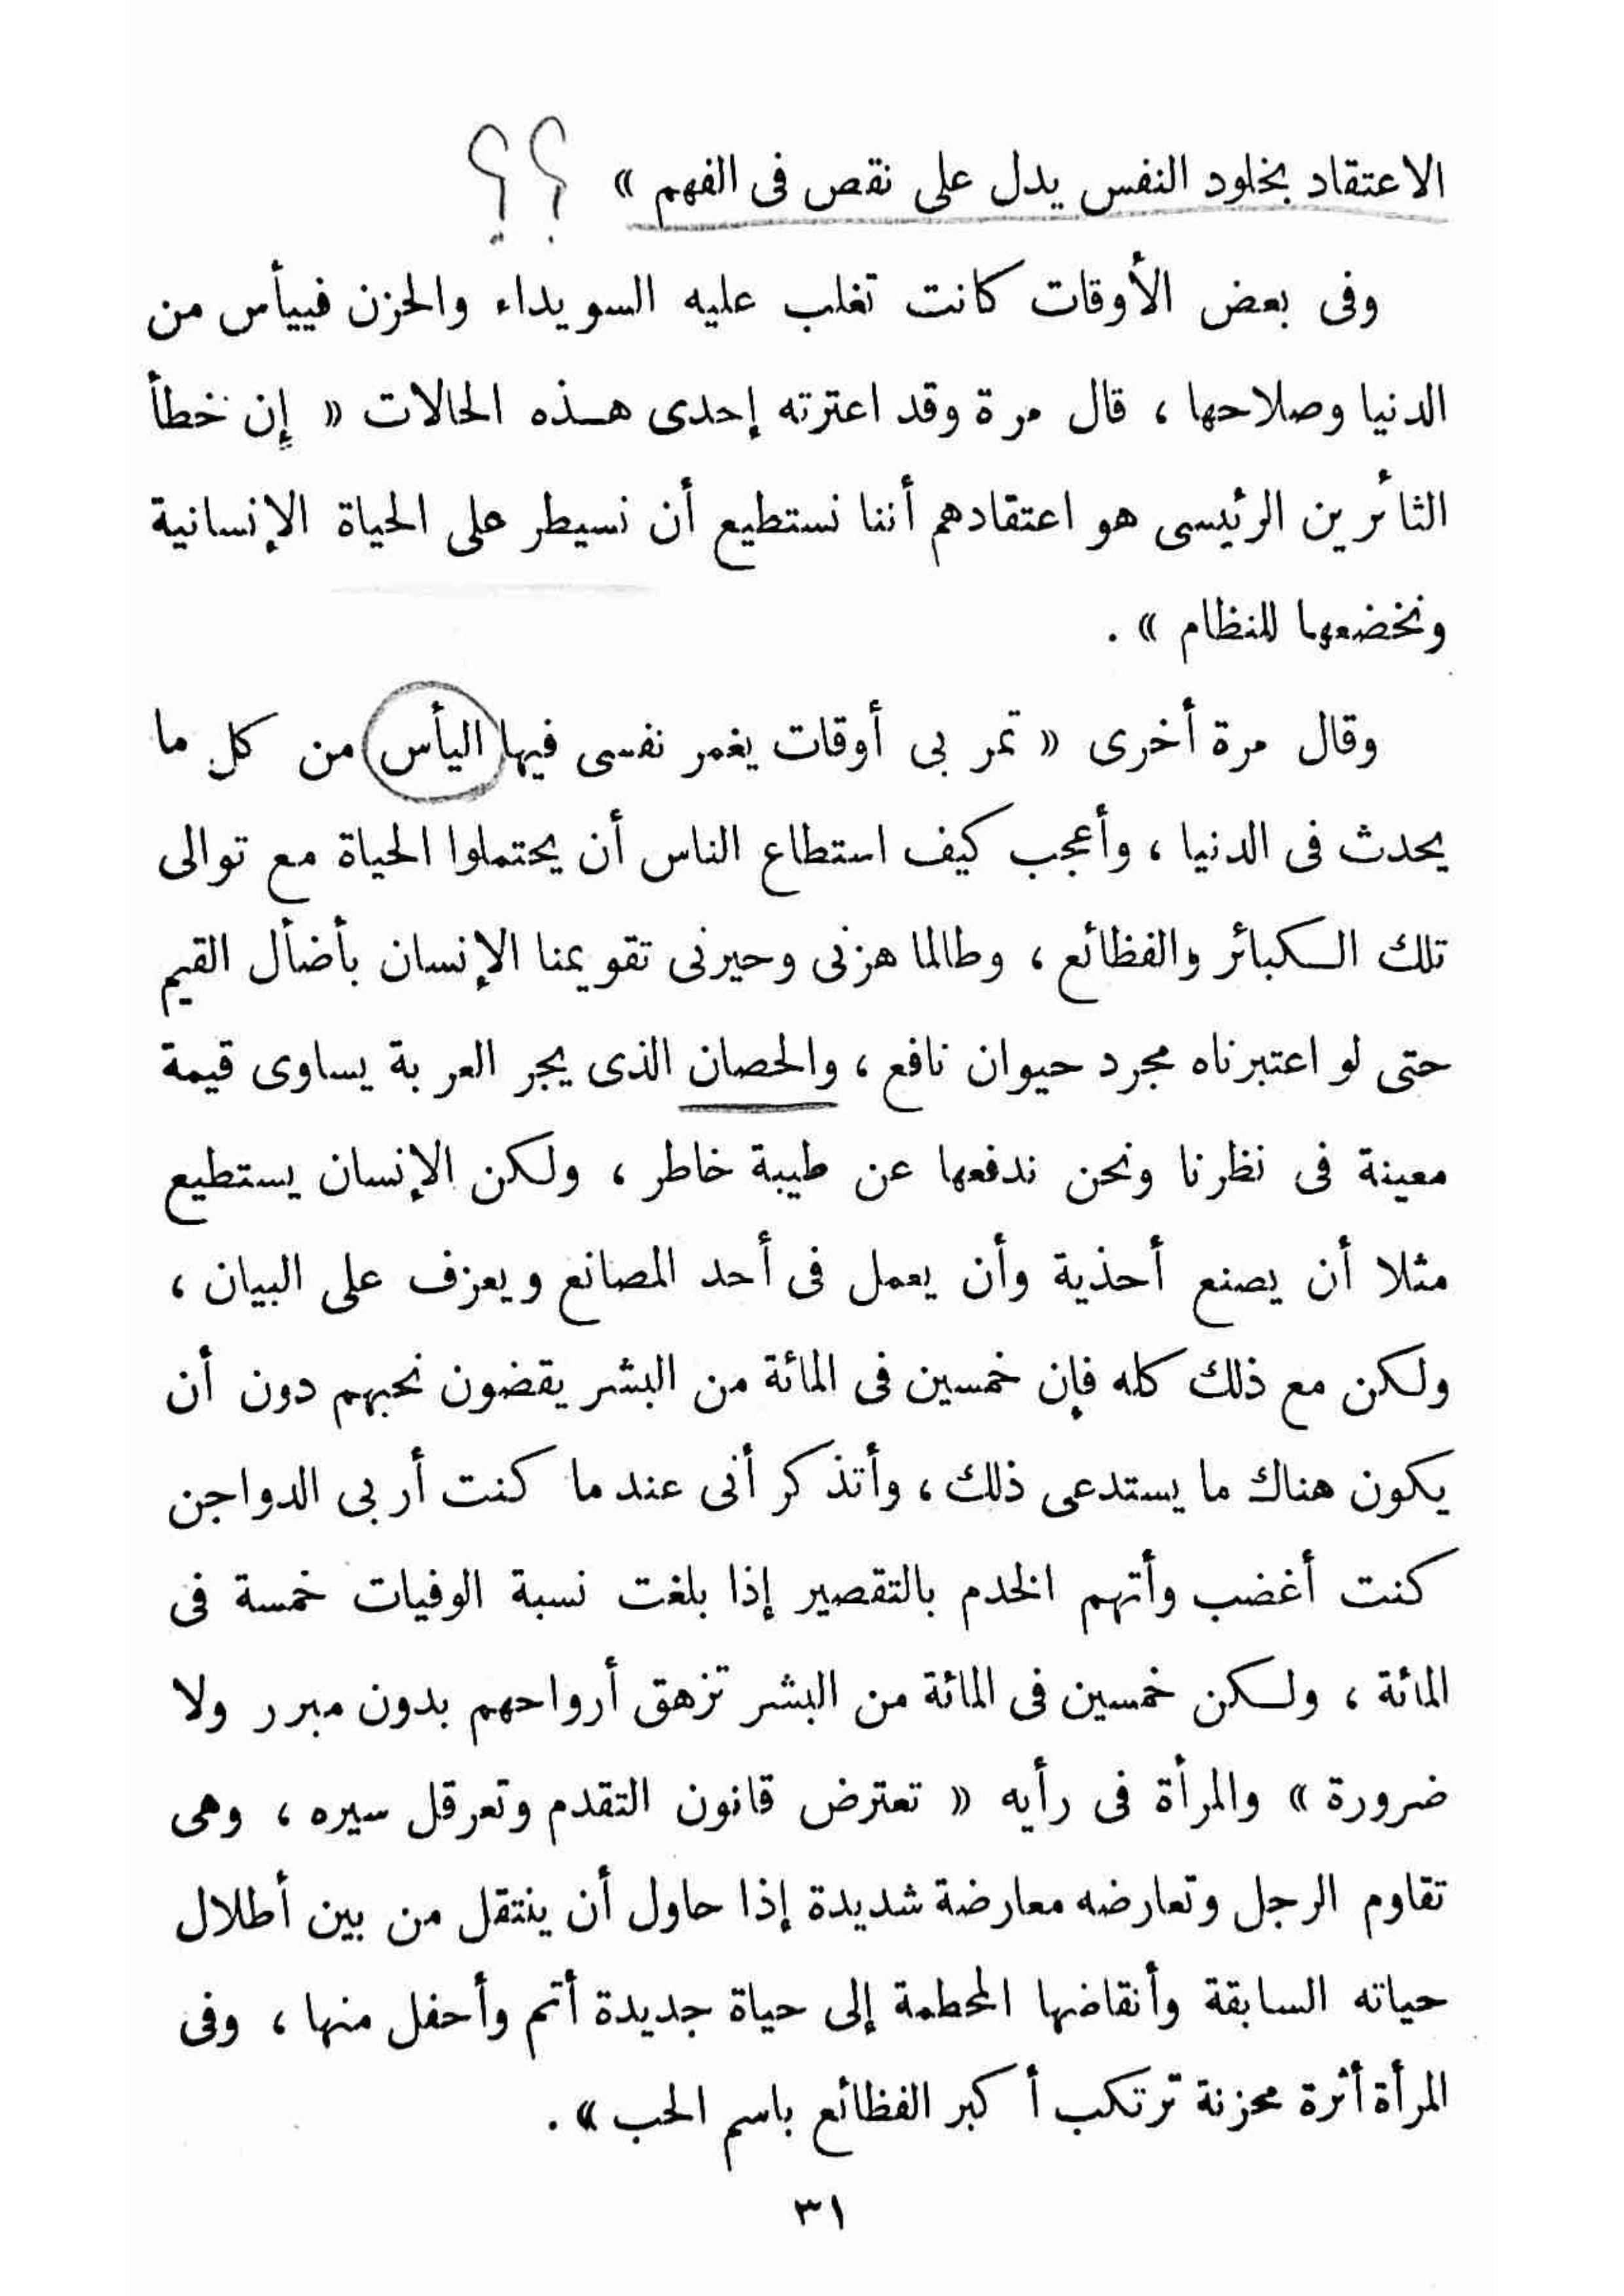 الاعتقاد بخلود النفس يدل على نقص فى الفهم » ؟ ؟
وفى بعض الأوقات كانت تغلب عليه السويداء والحزن فييأس من
الدنيا وصلاحها ، قال مرة وقد اعترته إحدى هذه الحالات « إن خطأ
الثائرين الرئيسى هو اعتقادهم أننا نستطيع أن نسيطر على الحياة الإنسانية
ونخضعها للنظام » .
وقال مرة أخرى « تمر بى أوقات يغمر نفسى فيها اليأس من كل ما
يحدث فى الدنيا ، وأعجب كيف استطاع الناس أن يحتملوا الحياة مع توالى
تلك الكبائر والفظائع ، وطالما هزنى وحيرنى تقويمنا الإنسان بأضأل القيم
حتى لو اعتبرناه مجرد حيوان نافع ، والحصان الذى يجر العربة يساوى قيمة
معينة فى نظرنا ونحن ندفعها عن طيبة خاطر ، ولكن الإنسان يستطيع
مثلا أن يصنع أحذية وأن يعمل فى أحد المصانع ويعزف على البيان ،
ولكن مع ذلك كله فإن خمسين فى المائة من البشر يقضون نحبهم دون أن
يكون هناك ما يستدعى ذلك ، وأتذكر أنى عندما كنت أربى الدواجن
كنت أغضب وأتهم الخدم بالتقصير إذا بلغت نسبة الوفيات خمسة فى
المائة ، ولكن خمسين فى المائة من البشر تزهق أرواحهم بدون مبرر ولا
ضرورة » والمرأة فى رأيه « تعترض قانون التقدم وتعرقل سيره ، وهى
تقاوم الرجل وتعارضه معارضة شديدة إذا حاول أن ينتقل من بين أطلال
حياته السابقة وأنقاضها المحطمة إلى حياة جديدة أتم وأحفل منها ، وفى
المرأة أثرة محزنة ترتكب أكبر الفظائع باسم الحب » .
٣١